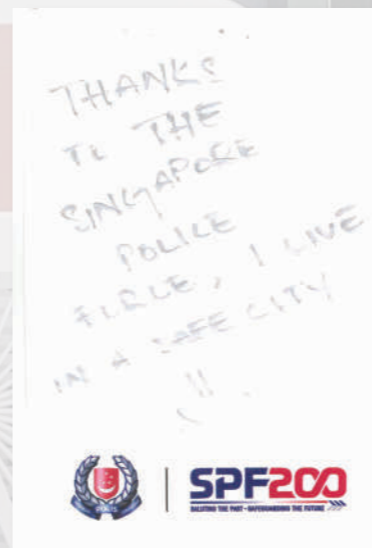 THANKS
TO THE
SINGAPORE
POLICE
FORCE, I LIVE
IN A SAFE CITY
!!
SPF200
SALUTING THE PAST • SAFEGUARDING THE FUTURE